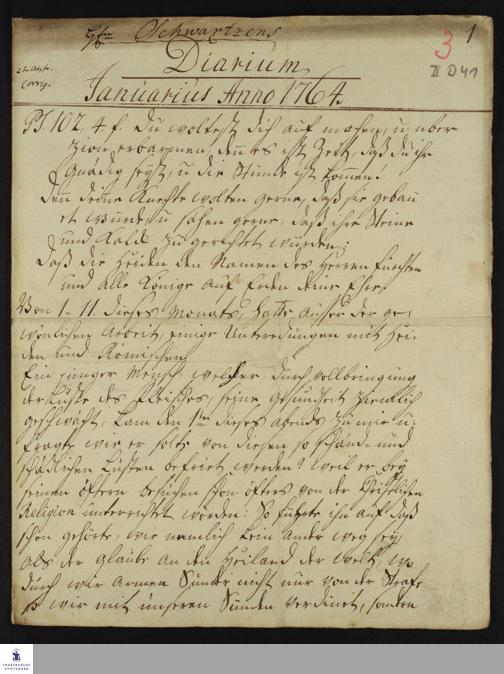 Hn Schwartzens
1
3
II D 41
Diarium
Januarius Anno 1764.
Ps. 102, 4 f. Du wollest dich auf machen, u. über
Zion erbarmen, denn es ist Zeit, daß du ihr
gnädig seyst, u. die Stunde ist kommen.
Denn deine Knechte wolten gerne, daß sie gebau
et würde, u. sähen gerne, daß ihre Steine
und Kalck zugerichtet würden;
Daß die Heiden den Namen des Herren fürchten
und alle Könige auf Erden deine Ehre.
Von 1 - 11. dieses Monats, hatte ausser der ge-
wönlichen Arbeit, einige Unterredungen mit Hei-
den und Römischen
Ein junger Mensch, welcher durch vollbringung
der Lüste des Fleisches, seine Gesundheit ziemlich
geschwächt, kam den 1ten dieses abends zu mir u.
fragte wie er solte von diesen so schänd- und
schädlichen Lüsten befriet werden? Weil er bey
seinen öftern besuchen schon öfters von der Christlichen
Religion unterrichtet worden: So führte ihn auf daß
schon gehörte, wie nemlich kein ander weg sey,
als der Glaube an den Heiland der Welt, wo
durch wir armen Sünder nicht nur von der Strafe
so wir mit unseren Sünden verdinet, sondern
FRANCKESCHE
STIFTUNGEN